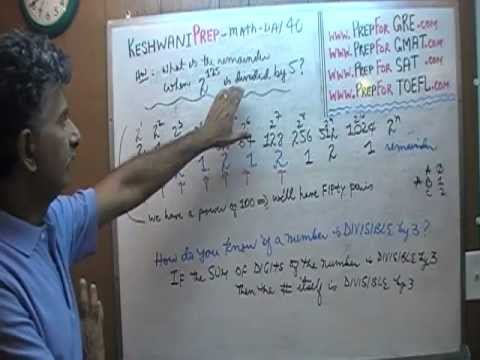 KESHWANIPREP-MATH-DAY 40
What is the remainder
when 2^125 is divided by 5?
www.PREPFOR GRE.com
www.PREPFOR GMAT.com
www.PREPFOR SAT.com
www.PREPFOR TOEFL.com
2^1 2^2 2^7 2^8 2^9 2^10 2^n
128 256 512 1024
1 2 1 2 1 2 1 remainder
we have a power of 100 will have FIFty pairs
How do you know if a number is DIVISIBLE by 3?
IF the SUM OF DIGITS of the number is DIVISIBLE by 3
Then the # itself is DIVISIBLE by 3